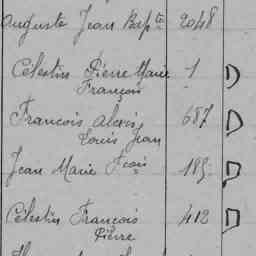 Auguste Jean Bapte 2048
Célestin Pierre Marie 1
François
François Alexis 687
Louis Jean
Jean Marie Fçois 185
Célestin François 412
Pierre